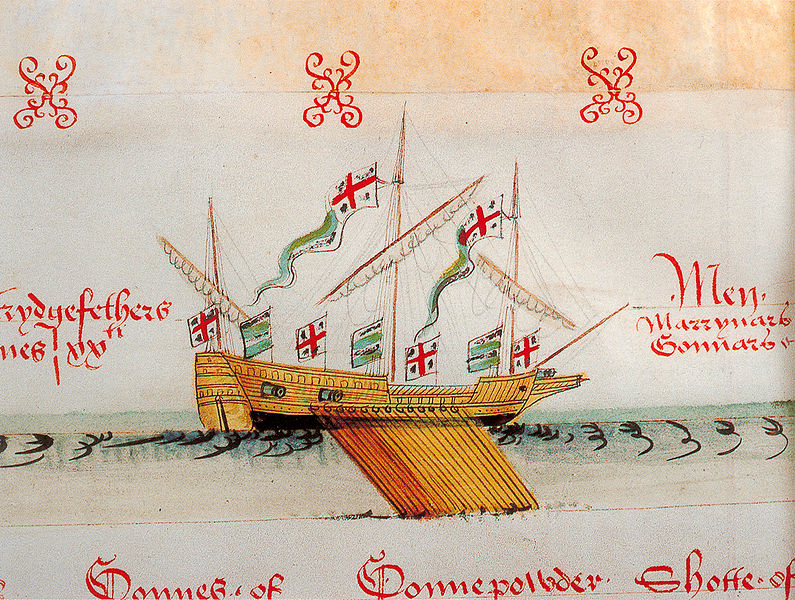 trydgefethers
nes | xxti
·Men·
Marrynars
Gonnars
Gonnes · of Gonnepowder · Shotte · of